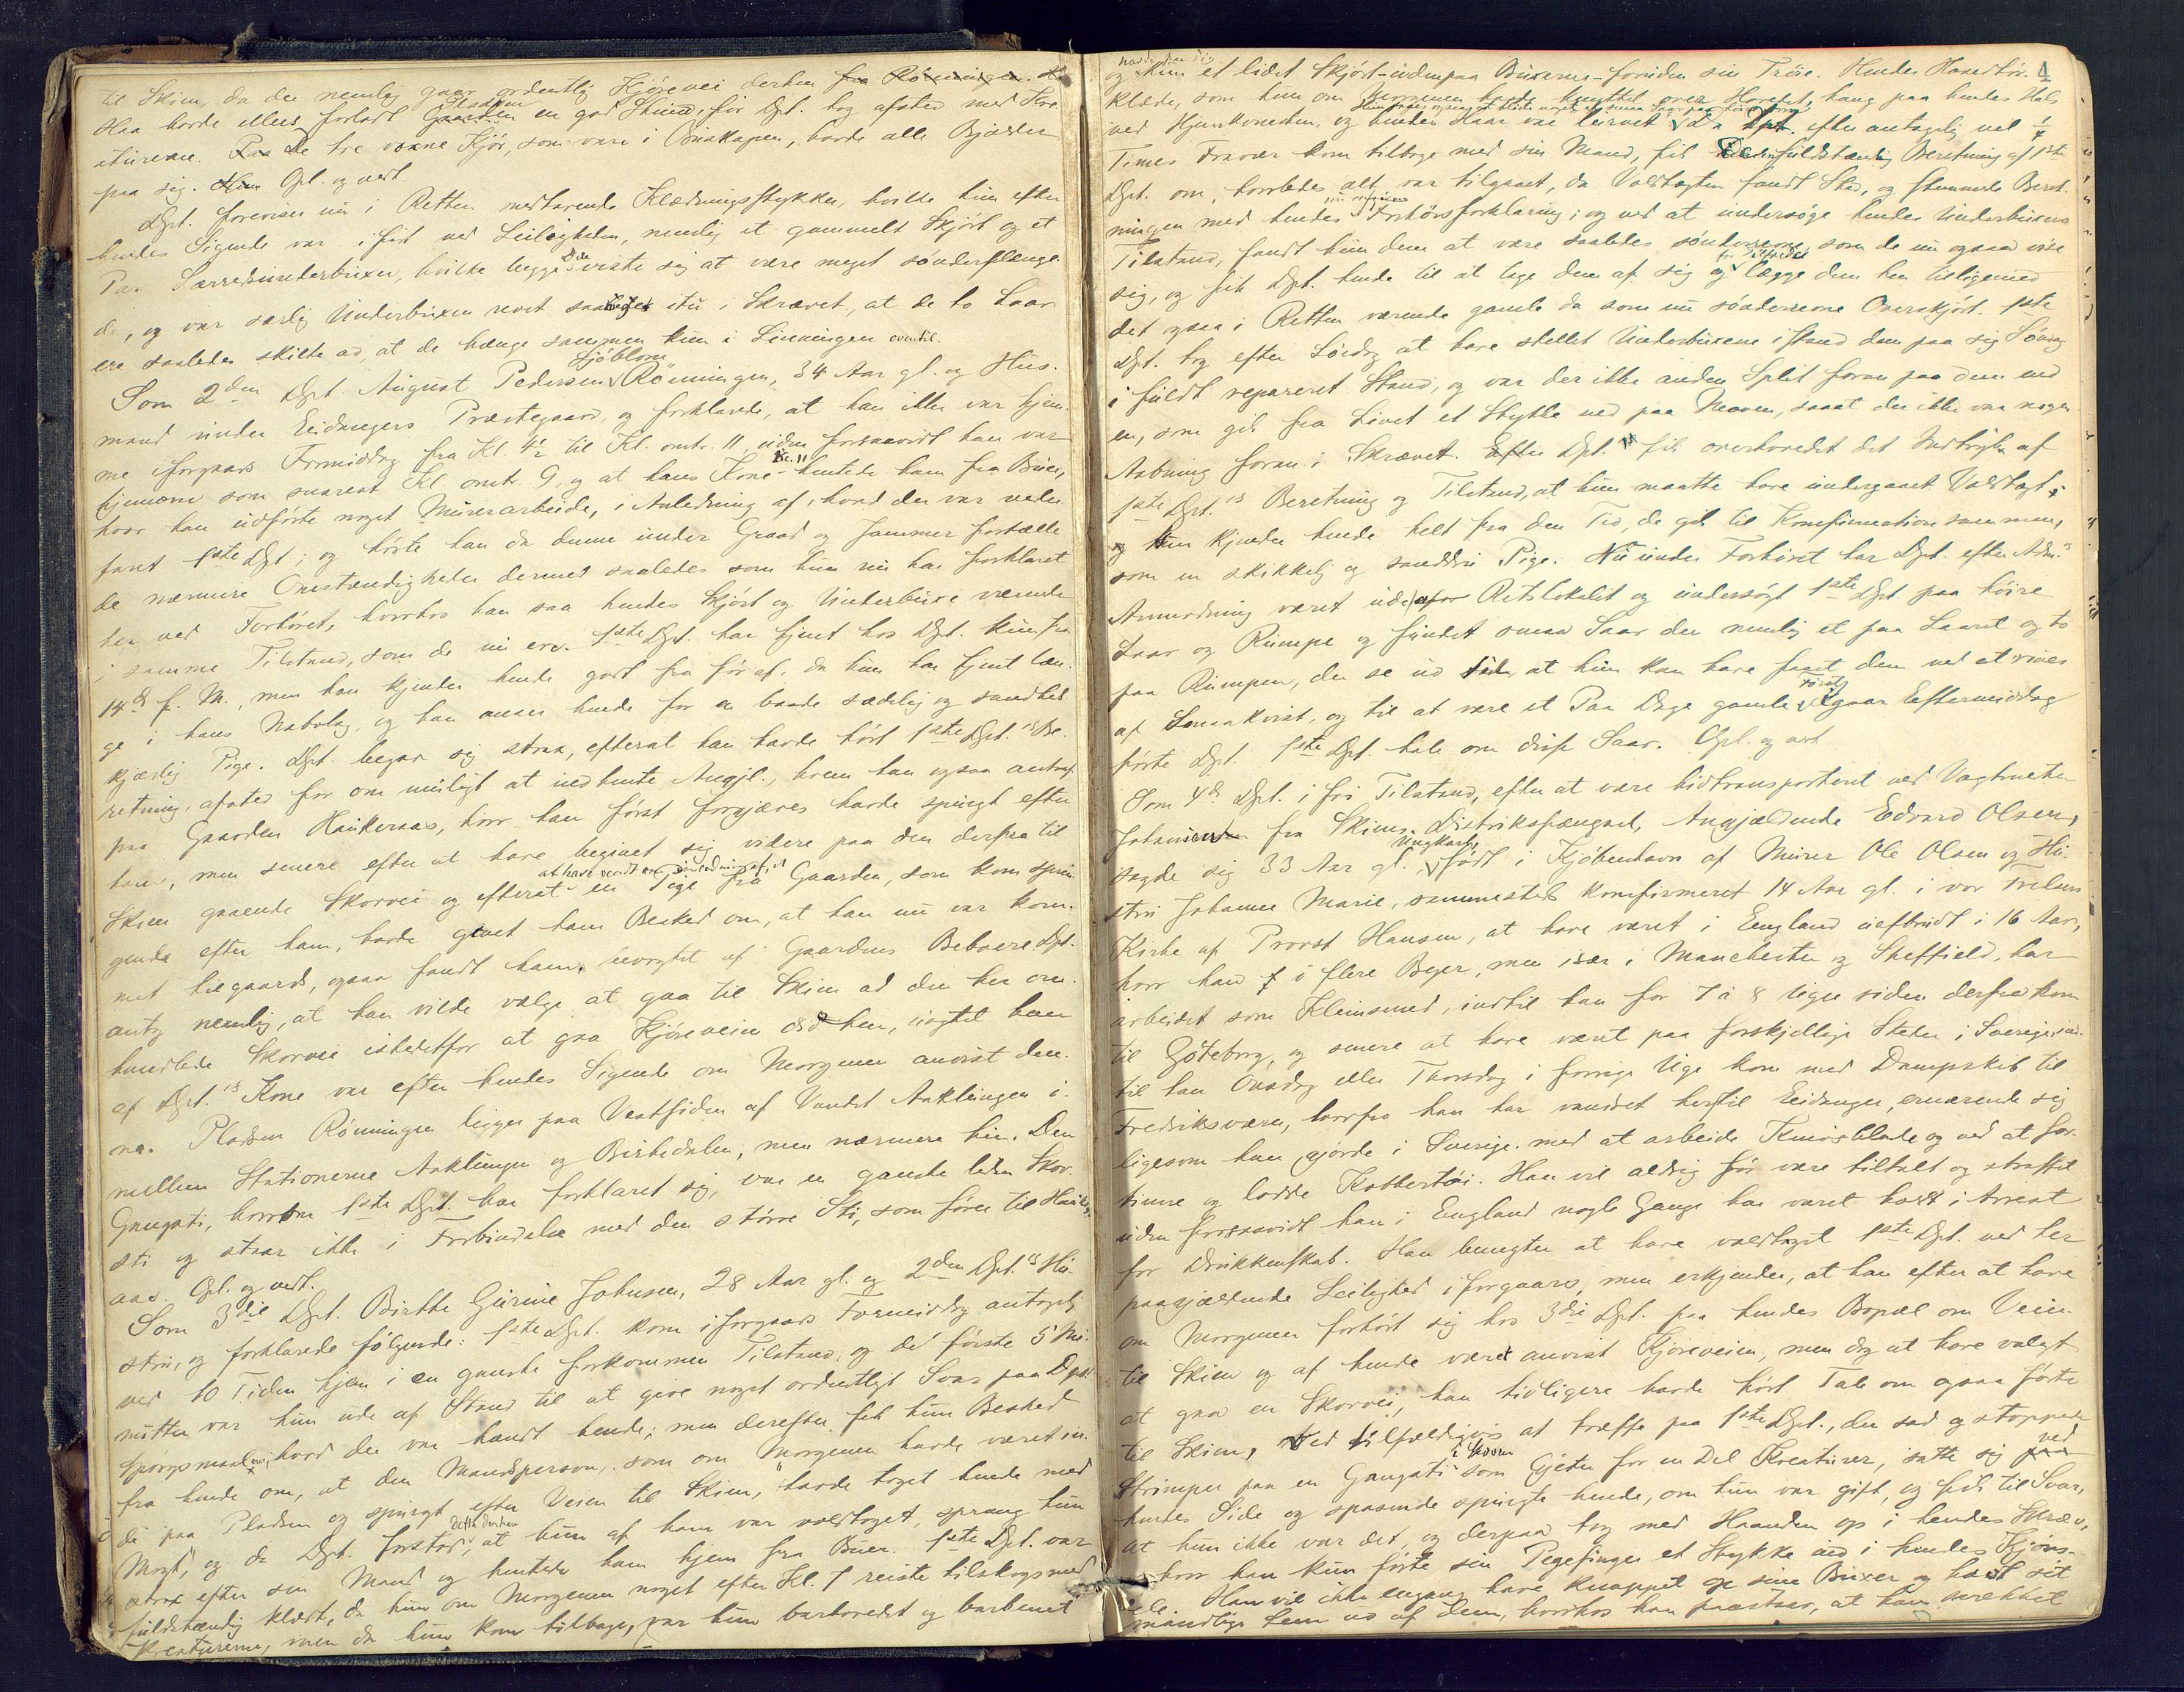 til Skien, da der nemlig gaar ordentlig Kjørevei derhen fra Rönningen.
Hun havde ellers forladt Gaarden Pladsen en god Stund, før Dpt. tog afsted med Kre
aturene. De tre vaxne Kjör, som vare i Buskapen, havde alle Bjælder
paa sig. Opl. og vedt.
Dpt. foreviser nu i Retten medhavende Klædningsstykker, hvilke hun efter
hendes Sigende var iført ved Leiligheden, nemlig et gammelt Skjört og et
Par Lærredsunderbuxer, hvilke begge Dele viste sig at være meget sönderflænge
de, og var særlig Underbuxen revet saaledes itu i Skrævet, at de to Laar
ere saaledes skilte ad, at de hænge sammen kun i Linningen oventil.
Som 2den Dpt. August Pedersen Sjöblom Rönningen, 34 Aar gl. og Hus-
mand under Eidangers Præstegaard, og forklarede, at han ikke var hjem-
me iforgaars Formiddag fra Kl. 4½ til Kl. omtr. 11 uden forsaavidt han var
hjemme som snarest Kl. omtr. 9, og at hans Kone Kl. 11 hentede ham fra Buer,
hvor han udførte noget Murerarbeide, i Anledning af, hvad der var veder-
faret 1ste Dpt; og hørte han da denne under Graad og Jammer fortælle
de nærmere Omstændigheder dermed saaledes som hun nu har forklaret
her ved Forhöret, hvorhos han saa hendes Skjört og Underbuxe værende
i samme Tilstand, som de nu ere. 1ste Dpt. har tjent hos Dpt. kun fra
14de f. M., men han kjender hende godt fra før af, da hun har tjent læn-
ge i hans Nabolag, og han anser hende for en baade sædelig og sandhed-
kjærlig Pige. Dpt. begav sig strax, efterat han havde hört 1ste Dpt.'s Be-
retning, afsted for om muligt at indhente Angjl., hvem han ogsaa antraf
paa Gaarden Haukeraas, hvor han först forgjæves havde spurgt efter
ham, men senere efter at have begivet sig videre paa den derfra til
Skien gaaende Skovvei og efterat en Pige fra Gaarden, som kom sprin-
gende efter ham, havde givet ham Besked om, at han nu var kom-
met tilgaards, ogsaa fandt ham, bevogtet af Gaardens Beboere. Dpt.
antog nemlig, at han vilde vælge at gaa til Skien ad den her om-
handlede Skovvei istedetfor at gaa Kjøreveien did hen, uagtet han
af Dpt.'s Kone var efter hendes Sigende om Morgenen anvist den-
ne. Pladsen Rönningen ligger paa Vestsiden af Vandet Aaklungen i-
mellem Stationerne Aaklungen og Birkedalen, men nærmere hin. Den
Gangsti, hvorom 1ste Dpt. har forklaret sig, var en ganske liden Skov-
sti og staar ikke i Forbindelse med den större Sti, som fører til Hauker-
aas. Opl. og vedt.
Som 3die Dpt. Birthe Gurine Johnsen, 28 Aar gl. og 2den Dpt.'s Hu-
stru, og forklarede følgende: 1ste Dpt. kom iforgaars Formiddag antagelig
ved 10 Tiden hjem i en ganske forkommen Tilstand; og de første 5 Mi-
nutter var hun ude af Stand til at give noget ordentligt Svar paa Dpt.'s
Spørgsmaal om, hvad der var hændt hende; men derefter fik hun Besked
fra hende om, at den Mandsperson, som om Morgenen havde været in-
de paa Pladsen og spurgt efter Veien til Skien, "havde taget hende med
Magt," og da Dpt. forstod, at hun af ham var voldtaget, sprang hun
strax efter sin Mand og hentede ham hjem fra Buer. 1ste Dpt. var
fuldstændig klædt, da hun om Morgenen noget efter Kl. 7 reiste tilskogs med
Kreaturerne, men da hun kom tilbage, var hun barhovedet og barbenet
4
og kun et lidet Skjört udenpaa Buxerne foruden sin Tröie. Hendes Hovedtør-
klæde, som hun om Morgenen havde knyttet over Hovedet, hang paa hendes Hals
ved Hjemkomsten, og hendes Haar var Da Dpt. efter antagelig vel 1/4
Times Fravær kom tilbage med sin Mand, fik fuldstændig Beretning af 1ste
Dpt. om, hvorledes alt var tilgaaet, da Voldtægten fandt Sted, og stemmede Beret-
ningen med hendes Forhörsforklaring; og ved at undersöge hendes Underbuxers
Tilstand, fandt hun dem at være saaledes sönderrevne, som de nu ogsaa vise
sig, og fik Dpt. hende til at tage dem af sig og lægge dem hen tilligemed
det ogsaa i Retten værende gamle da som nu sönderrevne Overskjört. 1ste
Dpt. tog efter Lördag at have stellet Underbuxene istand dem paa sig Söndag
i fuldt repareret Stand, og var der ikke anden Split foran paa dem end
en, som gik fra Livet et Stykke ned paa Maven, saaat der ikke var nogen
Aabning foran i Skrævet. Dpt. fik overhovedet det Indtryk af
1ste Dpt.'s Beretning og Tilstand, at hun maatte have undergaaet Voldtægt,
og hun kjender hende helt fra den Tid, de gik til Konfirmation sammen,
som en skikkelig og sanddru Pige. Nu under Forhöret har Dpt. efter Adm.'s
Anmodning været udenfor Retslokalet og undersögt 1ste Dpt. paa höire
Laar og Rumpe og fundet smaa Saar der nemlig et paa Laaret og to
paa Rumpen, der se ud til, at hun kan have faaet dem ved at rives
af Smaakvist, og til at være et Par Dage gamle. Først igaar Eftermiddag
hørte Dpt. 1ste Dpt. tale om disse Saar. Opl. og vedt
Som 4de Dpt. i fri Tilstand, efter at være hidtransporteret ved Vagtmester
Johansen fra Skiens Distriktsfængsel, Angjældende Edvard Olsen,
sagde sig 33 Aar gl., Ungkarl, född i Kjöbenhavn af Murer Ole Olsen og Hu-
stru Johanne Marie, sammesteds konfirmeret 14 Aar gl. i vor Frelsers
Kirke af Provst Hansen, at have været i England uafbrudt i 16 Aar,
hvor han i flere Byer, men især i Manchester og Sheffield, har
arbeidet som Kleinsmed, indtil han for 7 à 8 Uger siden derfra kom
til Göteborg, og senere at have været paa forskjellige Steder i Sverige, ind-
til han Onsdag eller Thorsdag i forrige Uge kom med Dampskib til
Fredriksværn, hvorfra han har vandret hertil Eidanger, ernærende sig
ligesom han gjorde i Sverige med at arbeide Knivsblade og ved at for-
tinne og lodde Kobbertöi. Han vil aldrig før være tiltalt og straffet
uden forsaavidt han i England nogle Gange har været havt i Arrest
for Drukkenskab. Han benegter at have voldtaget 1ste Dpt. ved her
paagjældende Leilighed iforgaars, men erkjender, at han efter at have
om Morgenen forhört sig hos 3die Dpt. paa hendes Bopæl om Veien
til Skien og af hende været anvist Kjøreveien, men dog at have valgt
at gaa en Skovvei, han tidligere havde hört Tale om ogsaa førte
til Skien, ved tilfældigvis at træffe paa 1ste Dpt., der sad og stoppede
Strömper paa en Gangsti i Skoven som Gjeter for en Del Kreaturer, satte sig ved
hendes Side og spasende spurgte hende, om hun var gift, og fik til Svar,
at hun ikke var det, og derpaa tog med Haanden op i hendes Skræv,
hvor han kun førte sin Pegefinger et Stykke ind i hendes Kjøns-
dele. Han vil ikke engang have knappet op sine Buxer og havt sit
mandlige Lem ud af dem, hvorhos han paastaar, at han